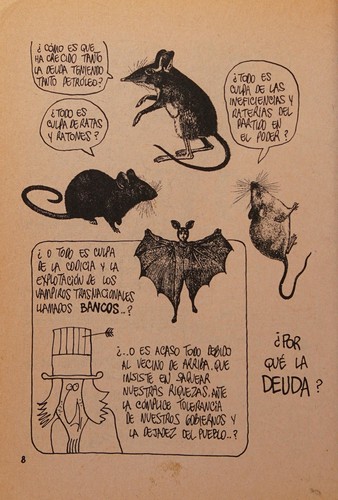 ¿CÓMO ES QUE
HA CRECIDO TANTO
LA DEUDA TENIENDO
TANTO PETRÓLEO?
¿TODO ES
CULPA DE RATAS
Y RATONES?
¿TODO ES
CULPA DE LAS
INEFICIENCIAS Y
RATERÍAS DEL
PARTIDO EN
EL PODER?
¿O TODO ES CULPA
DE LA CODICIA Y LA
EXPLOTACIÓN DE LOS
VAMPIROS TRASNACIONALES
LLAMADOS BANCOS..?
¿...O ES ACASO TODO DEBIDO
AL VECINO DE ARRIBA, QUE
INSISTE EN SAQUEAR
NUESTRAS RIQUEZAS, ANTE
LA CÓMPLICE TOLERANCIA
DE NUESTROS GOBIERNOS Y
LA DEJADEZ DEL PUEBLO..?
¿POR
QUÉ LA
DEUDA?
8